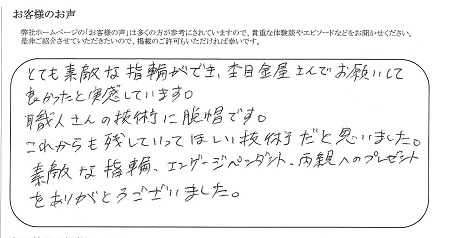 お客様のお声
弊社ホームページの「お客様の声」は多くの方が参考にされていますので、貴重な体験談やエピソードなどをお聞かせください。
是非ご紹介させていただきたいので、掲載のご許可もいただければ幸いです。
とても素敵な指輪ができ、杢目金屋さんでお願いして
良かったと実感しています。
職人さんの技術に脱帽です。
これからも残していってほしい技術だと思いました。
素敵な指輪、エンゲージペンダント、両親へのプレゼント
をありがとうございました。